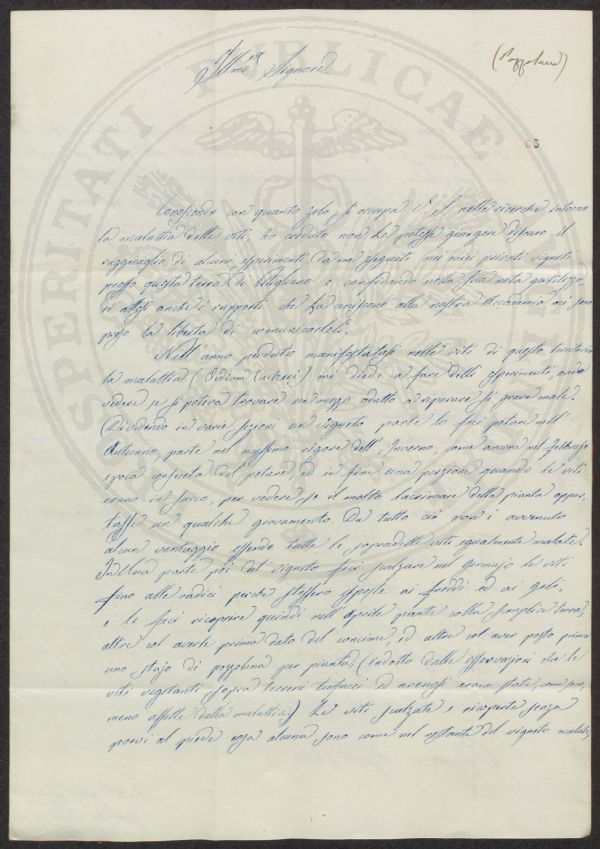 (Pozzolana)
Illmo Signore
Conoscendo con quanto zelo si occupa V. S. nelle ricerche intorno
la malattia delle viti, ho creduto non Le potesse giungere discaro il
ragguaglio di alcuni esperimenti da me eseguiti nei miei piccoli vigneti
presso questa terra di e confidando nella sua nota gentilezza
ed attesi anche i rapporti che La uniscono alla nostra Accademia mi sono
preso la libertà di comunicarceli.
Nell'anno perduto manifestatasi nelle viti di questo territorio
la malattia (Oidium Tuckeri) mi diedi a fare delli esperimenti, onde
vedere se si poteva trovare un mezzo adatto a riparare sì grave male.
Dividendo in varie sezioni un vigneto parte lo feci potare nell'
Autunno, parte nel massimo rigore dell'Inverno, come ancora nel Febbrajo
epoca consueta del potare, ed in fine una porzione quando le viti
erano in succo, per vedere se il molto lacrimare della pianta appor-
tasse un qualche giovamento. Da tutto ciò non è avvenuto
alcun vantaggio essendo tutte le sopradette viti egualmente malate.
In una parte poi del vigneto feci scalzare nel Gennajo le viti
fino alle radici perchè stessero esposte ai freddi ed ai geli,
e le feci ricoprire quindi nell'Aprile parte colla semplice terra,
altre col averle prima dato del concime, ed altre col aver posto prima
uno stajo di pozzolana per pianta, (indotto dalle osservazioni che le
viti vegetanti sopra terreni tufacei ed arenosi erano state,
meno affette dalla malattia) Le viti scalzate e ricoperte senza
porvi al piede cosa alcuna sono come nel restante del vigneto malate,